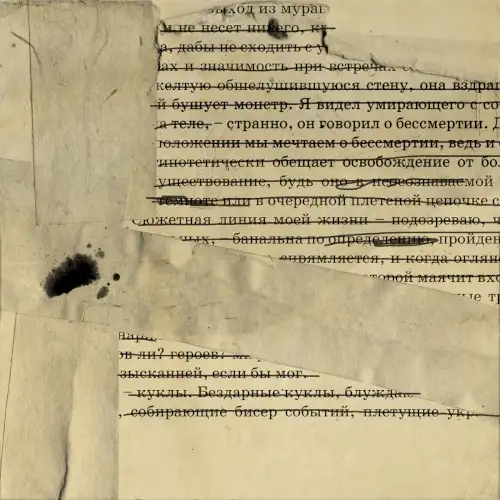 ыход из мурав
м не несет ничего, кр
а, дабы не сходить с у
ах и значимость при встречах
желтую обшелушившуюся стену, она вздра
й бушует монстр. Я видел умирающего с со
а теле, – странно, он говорил о бессмертии. Д
положении мы мечтаем о бессмертии, ведь и
ипотетически обещает освобождение от бол
уществование, будь оно в неосознаваемой
темноте или в очередной плетеной цепочке с
сюжетная линия моей жизни – подозреваю, ч
ных, – банальна по определению, пройден
спрямляется, и когда оглян
второй маячит вхо
ные тр
нара
ов ли? героев?
зысканней, если бы мог.
– куклы. Бездарные куклы, блужда
, собирающие бисер событий, плетущие укр